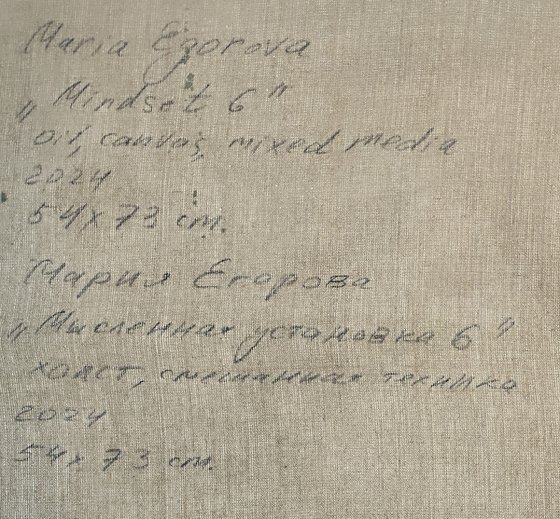 Maria Egorova
„Mindset 6"
oil, canvas, mixed media
2024
54 x 73 cm.
Мария Егорова
„Мысленная установка 6"
холст, смешанная техника
2024
54 x 73 cm.